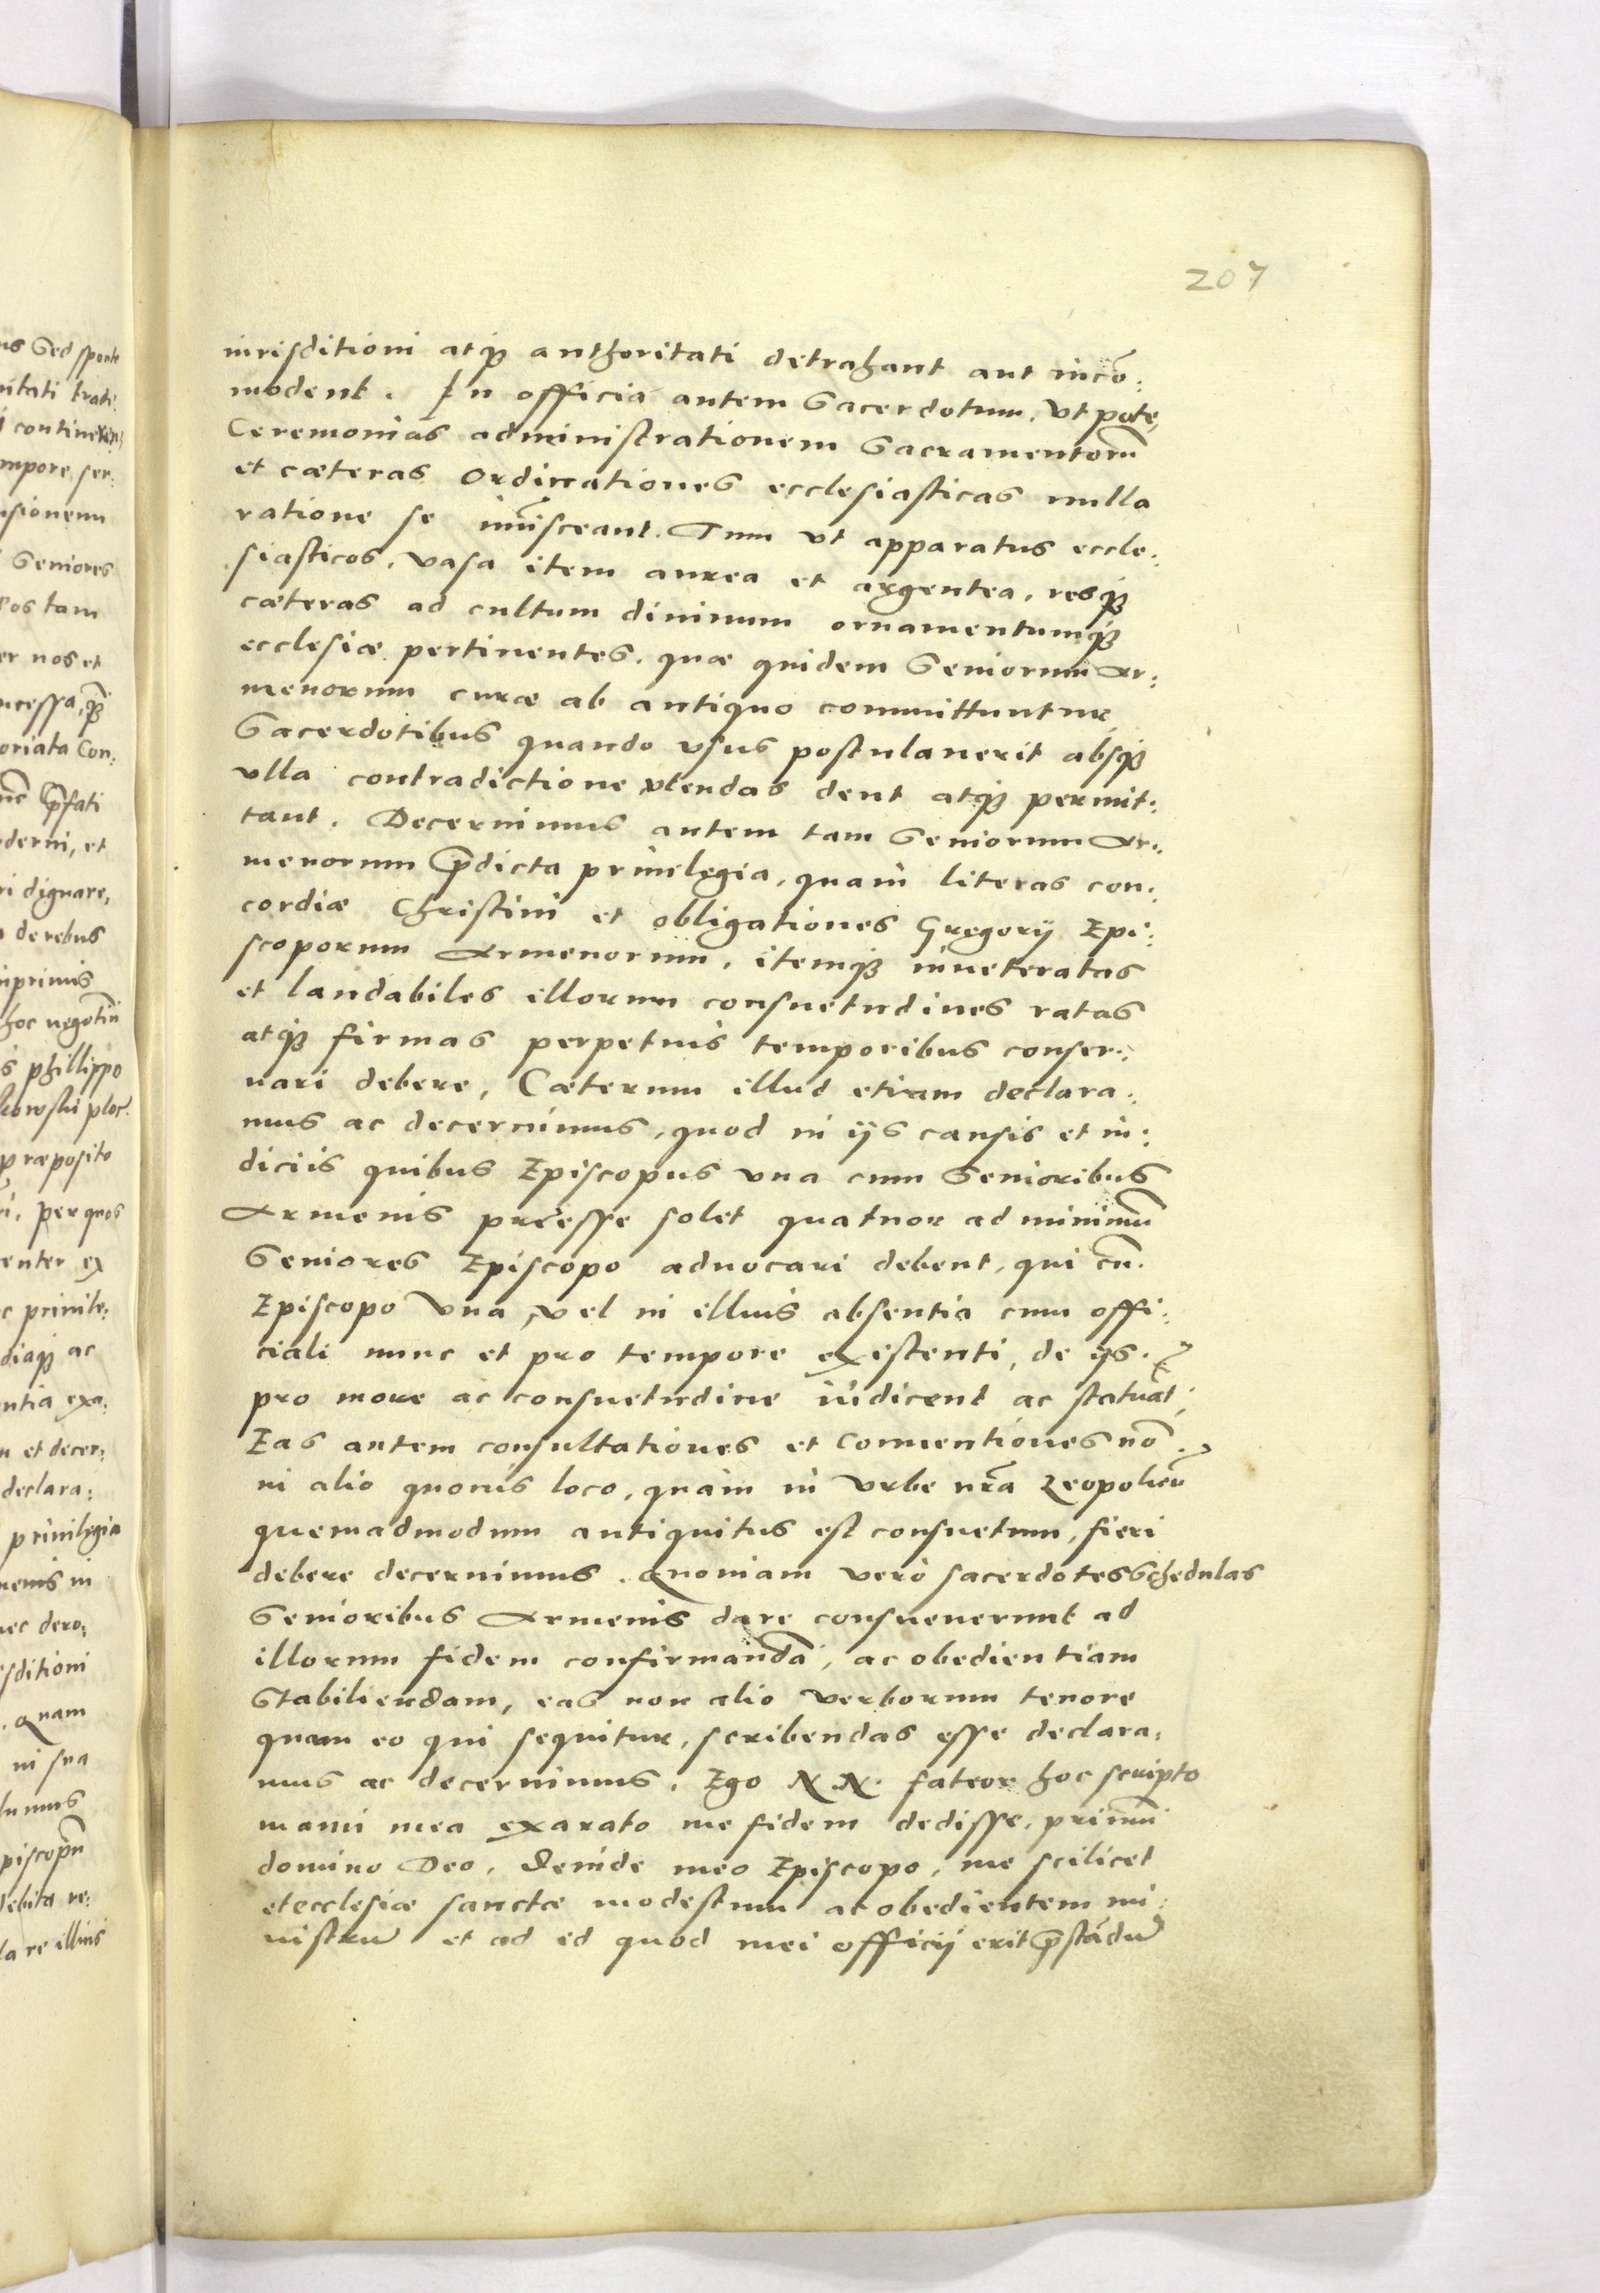 207
iurisditioni atq3 authoritati detrahant aut incō:
modent. In officia autem Sacerdotum, vt pote,
Ceremonias administrationem Sacramentorū
et cæteras Ordinationes ecclesiasticas nulla
ratione se im̄isceant. Tum vt apparatus eccle:
siasticos, vasa item aurea et argentea, resq3
cæteras ad cultum diuinum ornamentumq3
ecclesiæ pertinentes, quæ quidem Seniorum Ar:
menorum curæ ab antiquo committuntur
Sacerdotibus quando vsus postulauerit absq3
vlla contradictione vtendas dent atq3 permit:
tant. Decernimus autem tam Seniorum Ar:
menorum p̄dicta priuilegia, quam literas con:
cordiæ Christini et obligationes Gregorij Epi:
scoporum Armenorum, itemq3 inueteratas
et laudabiles illorum consuetudines ratas
atq3 firmas perpetuis temporibus conser:
uari debere, Cæterum illud etiam declara:
mus ac decernimus, quod in ijs causis et iu:
diciis quibus Episcopus vna cum Senioribus
Armenis preesse solet quatuor ad minimū
Seniores Episcopo aduocari debent, qui cū
Episcopo vna, vel in illius absentia cum offi:
ciali nunc et pro tempore existenti, de ijs
pro more ac consuetudine iudicent ac statuāt,
Eas autem consultationes et Conuentiones nō
in alio quouis loco, quam in Vrbe nr̄a Leopolien̄
quemadmodum antiquitus est consuetum, fieri
debere decernimus. Quoniam vero sacerdotes Schedulas
Senioribus Armenis dare consueuerunt ad
illorum fidem confirmandā, ac obedientiam
Stabiliendam, eas non alio verborum tenore
quam eo qui sequitur, scribendas esse declara:
mus ac decernimus. Ego N. N. fateor hoc scripto
manu mea exarato me fidem dedisse, primū
domino Deo, deinde meo Episcopo, me scilicet
et ecclesiæ sanctæ modestum ac obedientem mi:
nistrū et ad id quod mei officij erit p̄stādū